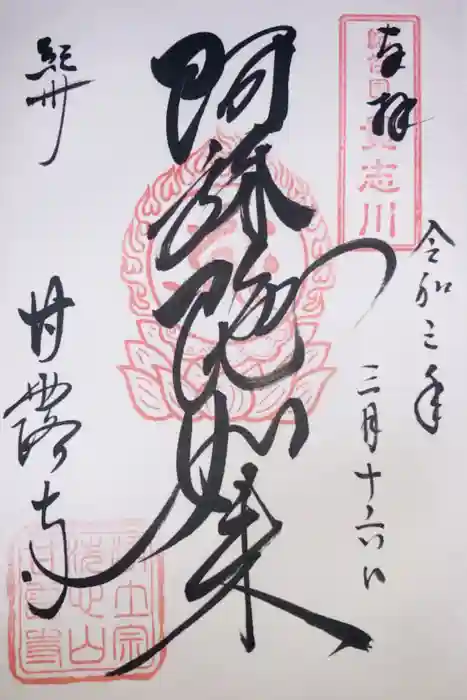 奉拝
令和三年
三月十六日
阿弥陀如来
紀州
甘露寺
貴志川
浄土宗